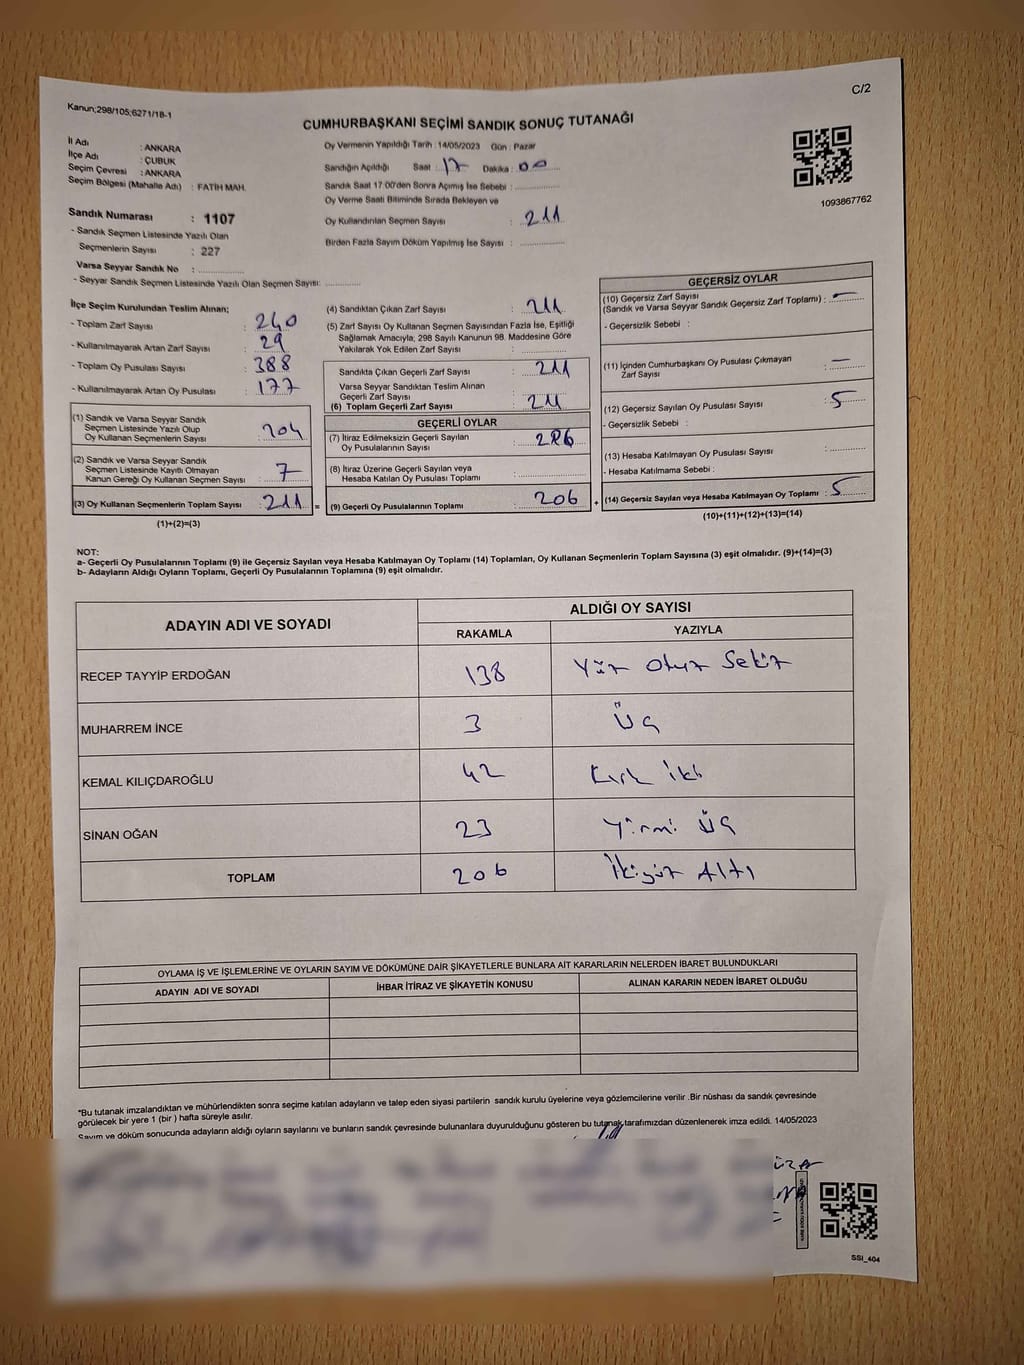 C/2
Kanun;298/105;6271/18-1
CUMHURBAŞKANI SEÇİMİ SANDIK SONUÇ TUTANAĞI
İl Adı : ANKARA
İlçe Adı : ÇUBUK
Seçim Çevresi : ANKARA
Seçim Bölgesi (Mahalle Adı) : FATİH MAH.
Sandık Numarası : 1107
- Sandık Seçmen Listesinde Yazılı Olan
Seçmenlerin Sayısı : 227
Varsa Seyyar Sandık No :
- Seyyar Sandık Seçmen Listesinde Yazılı Olan Seçmen Sayısı:
Oy Vermenin Yapıldığı Tarih :14/05/2023 Gün : Pazar
Sandığın Açıldığı Saat : 17 Dakika : 00
Sandık Saat 17.00'den Sonra Açımış İse Sebebi :
Oy Verme Saati Bitiminde Sırada Bekleyen ve
Oy Kullandırılan Seçmen Sayısı : 211
Birden Fazla Sayım Döküm Yapılmış İse Sayısı :
1093867762
İlçe Seçim Kurulundan Teslim Alınan;
- Toplam Zarf Sayısı : 240
- Kullanılmayarak Artan Zarf Sayısı : 29
- Toplam Oy Pusulası Sayısı : 388
- Kullanılmayarak Artan Oy Pusulası : 177
(1) Sandık ve Varsa Seyyar Sandık
Seçmen Listesinde Yazılı Olup
Oy Kullanan Seçmenlerin Sayısı : 204
(2) Sandık ve Varsa Seyyar Sandık
Seçmen Listesinde Kayıtlı Olmayan
Kanun Gereği Oy Kullanan Seçmen Sayısı : 7
(3) Oy Kullanan Seçmenlerin Toplam Sayısı : 211 =
(1)+(2)=(3)
(4) Sandıktan Çıkan Zarf Sayısı : 211
(5) Zarf Sayısı Oy Kullanan Seçmen Sayısından Fazla İse, Eşitliği
Sağlamak Amacıyla, 298 Sayılı Kanunun 98. Maddesine Göre
Yakılarak Yok Edilen Zarf Sayısı :
Sandıkta Çıkan Geçerli Zarf Sayısı : 211
Varsa Seyyar Sandıktan Teslim Alınan
Geçerli Zarf Sayısı :
(6) Toplam Geçerli Zarf Sayısı : 211
GEÇERLİ OYLAR
(7) İtiraz Edilmeksizin Geçerli Sayılan
Oy Pusulalarının Sayısı :
(8) İtiraz Üzerine Geçerli Sayılan veya
Hesaba Katılan Oy Pusulası Toplamı :
(9) Geçerli Oy Pusulalarının Toplamı : 206 +
GEÇERSİZ OYLAR
(10) Geçersiz Zarf Sayısı
(Sandık ve Varsa Seyyar Sandık Geçersiz Zarf Toplamı) : —
- Geçersizlik Sebebi :
(11) İçinden Cumhurbaşkanı Oy Pusulası Çıkmayan
Zarf Sayısı : —
(12) Geçersiz Sayılan Oy Pusulası Sayısı : 5
- Geçersizlik Sebebi :
(13) Hesaba Katılmayan Oy Pusulası Sayısı :
- Hesaba Katılmama Sebebi :
(14) Geçersiz Sayılan veya Hesaba Katılmayan Oy Toplamı : 5
(10)+(11)+(12)+(13)=(14)
NOT:
a- Geçerli Oy Pusulalarının Toplamı (9) ile Geçersiz Sayılan veya Hesaba Katılmayan Oy Toplamı (14) Toplamları, Oy Kullanan Seçmenlerin Toplam Sayısına (3) eşit olmalıdır. (9)+(14)=(3)
b- Adayların Aldığı Oyların Toplamı, Geçerli Oy Pusulalarının Toplamına (9) eşit olmalıdır.
ADAYIN ADI VE SOYADI
ALDIĞI OY SAYISI
RAKAMLA YAZIYLA
RECEP TAYYİP ERDOĞAN 138 Yüz Otuz Sekiz
MUHARREM İNCE 3 Üç
KEMAL KILIÇDAROĞLU 42 Kırk iki
SİNAN OĞAN 23 Yirmi Üç
TOPLAM 206 İkiyüz Altı
OYLAMA İŞ VE İŞLEMLERİNE VE OYLARIN SAYIM VE DÖKÜMÜNE DAİR ŞİKAYETLERLE BUNLARA AİT KARARLARIN NELERDEN İBARET BULUNDUKLARI
ADAYIN ADI VE SOYADI İHBAR İTİRAZ VE ŞİKAYETİN KONUSU ALINAN KARARIN NEDEN İBARET OLDUĞU
*Bu tutanak imzalandıktan ve mühürlendikten sonra seçime katılan adayların ve talep eden siyasi partilerin sandık kurulu üyelerine veya gözlemcilerine verilir .Bir nüshası da sandık çevresinde
görülecek bir yere 1 (bir ) hafta süreyle asılır.
Sayım ve döküm sonucunda adayların aldığı oyların sayılarını ve bunların sandık çevresinde bulunanlara duyurulduğunu gösteren bu tutanak tarafımızdan düzenlenerek imza edildi. 14/05/2023
SSI_404